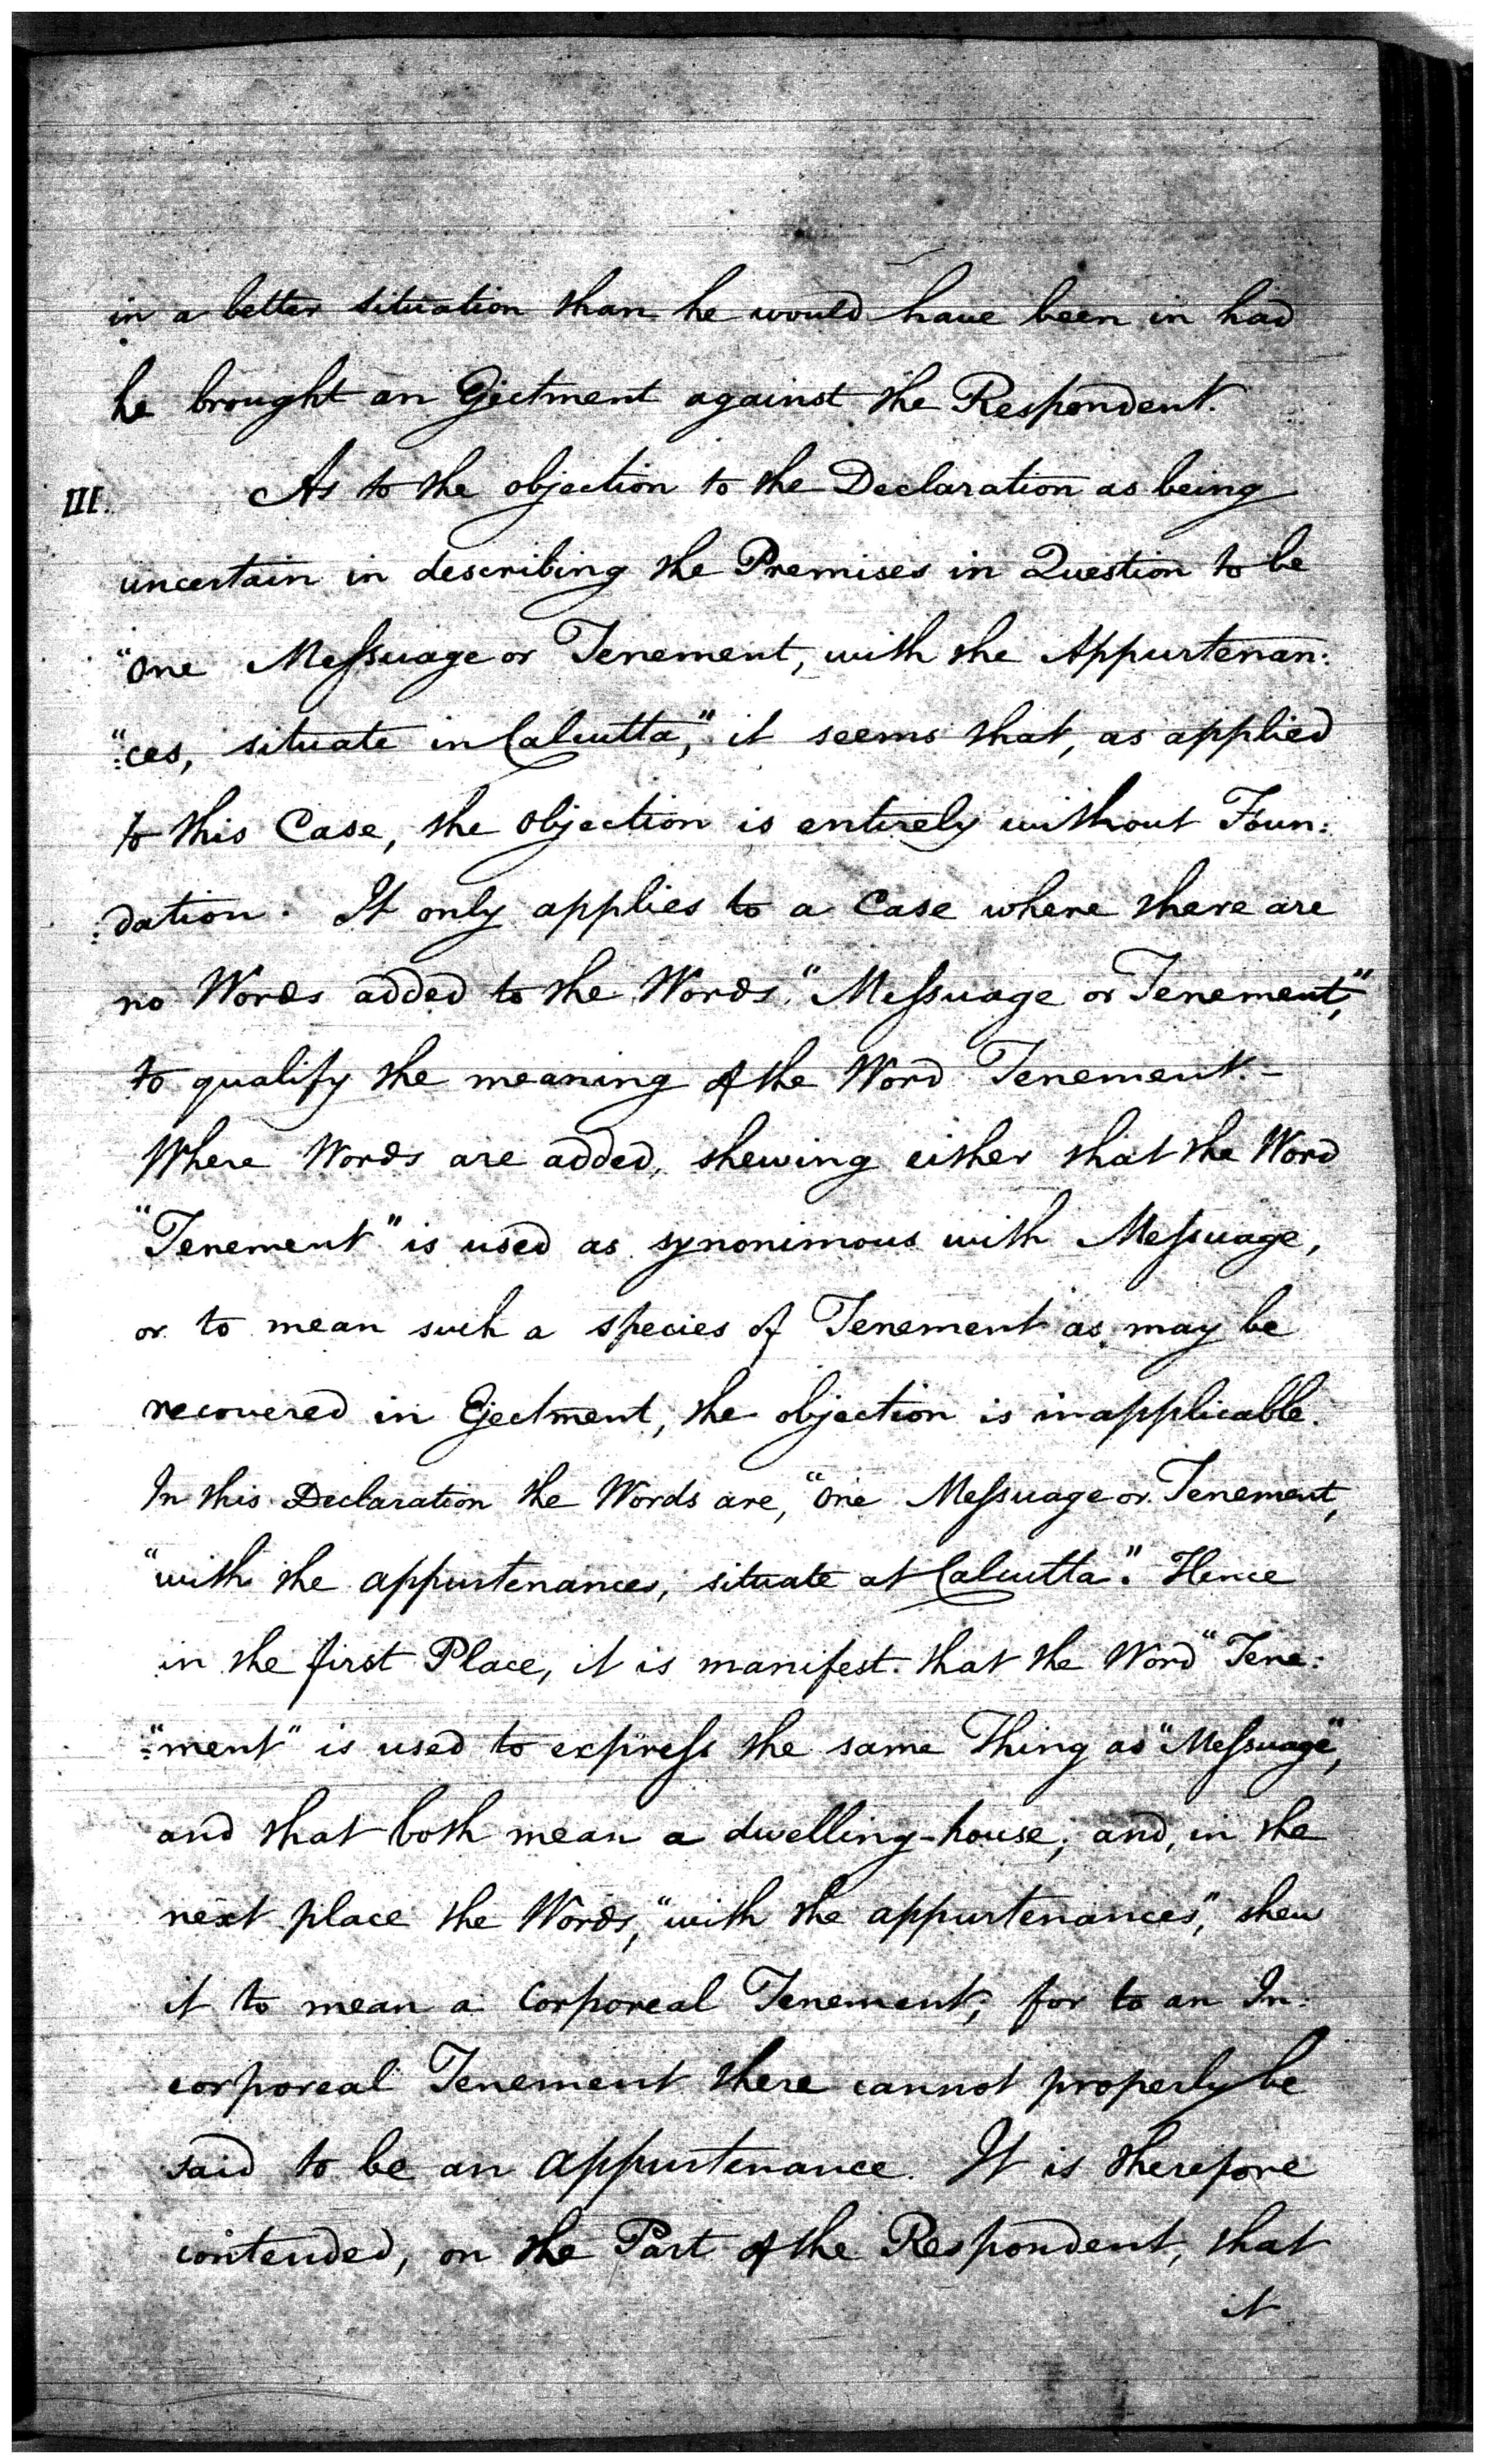 in a better situation than he would have been in had
he brought an Ejectment against the Respondent.
III. As to the objection to the Declaration as being
uncertain in describing the Premises in Question to be
"One Meſsuage or Tenement, with the Appurtenan:
":ces, situate in Calcutta," it seems that, as applied
to this Case, the objection is entirely without Foun:
:dation. It only applies to a Case where there are
no Words added to the Words "Meſsuage or Tenement,"
to qualify the meaning of the Word Tenement. -
Where Words are added, shewing either that the Word
"Tenement" is used as synonimous with Meſsuage,
or to mean such a species of Tenement as may be
recovered in Ejectment, the objection is inapplicable.
In this Declaration the Words are, "One Meſsuage or Tenement,
"with the appurtenances, situate at Calcutta". Hence
in the first Place, it is manifest that the Word "Tene:
":ment" is used to expreſs the same Thing as "Meſsuage",
and that both mean a dwelling-house; and, in the
next place the Words, "with the appurtenances", shew
it to mean a Corporeal Tenement; for to an In:
corporeal Tenement there cannot properly be
said to be an appurtenance. It is therefore
contended, on the Part of the Respondent, that
it